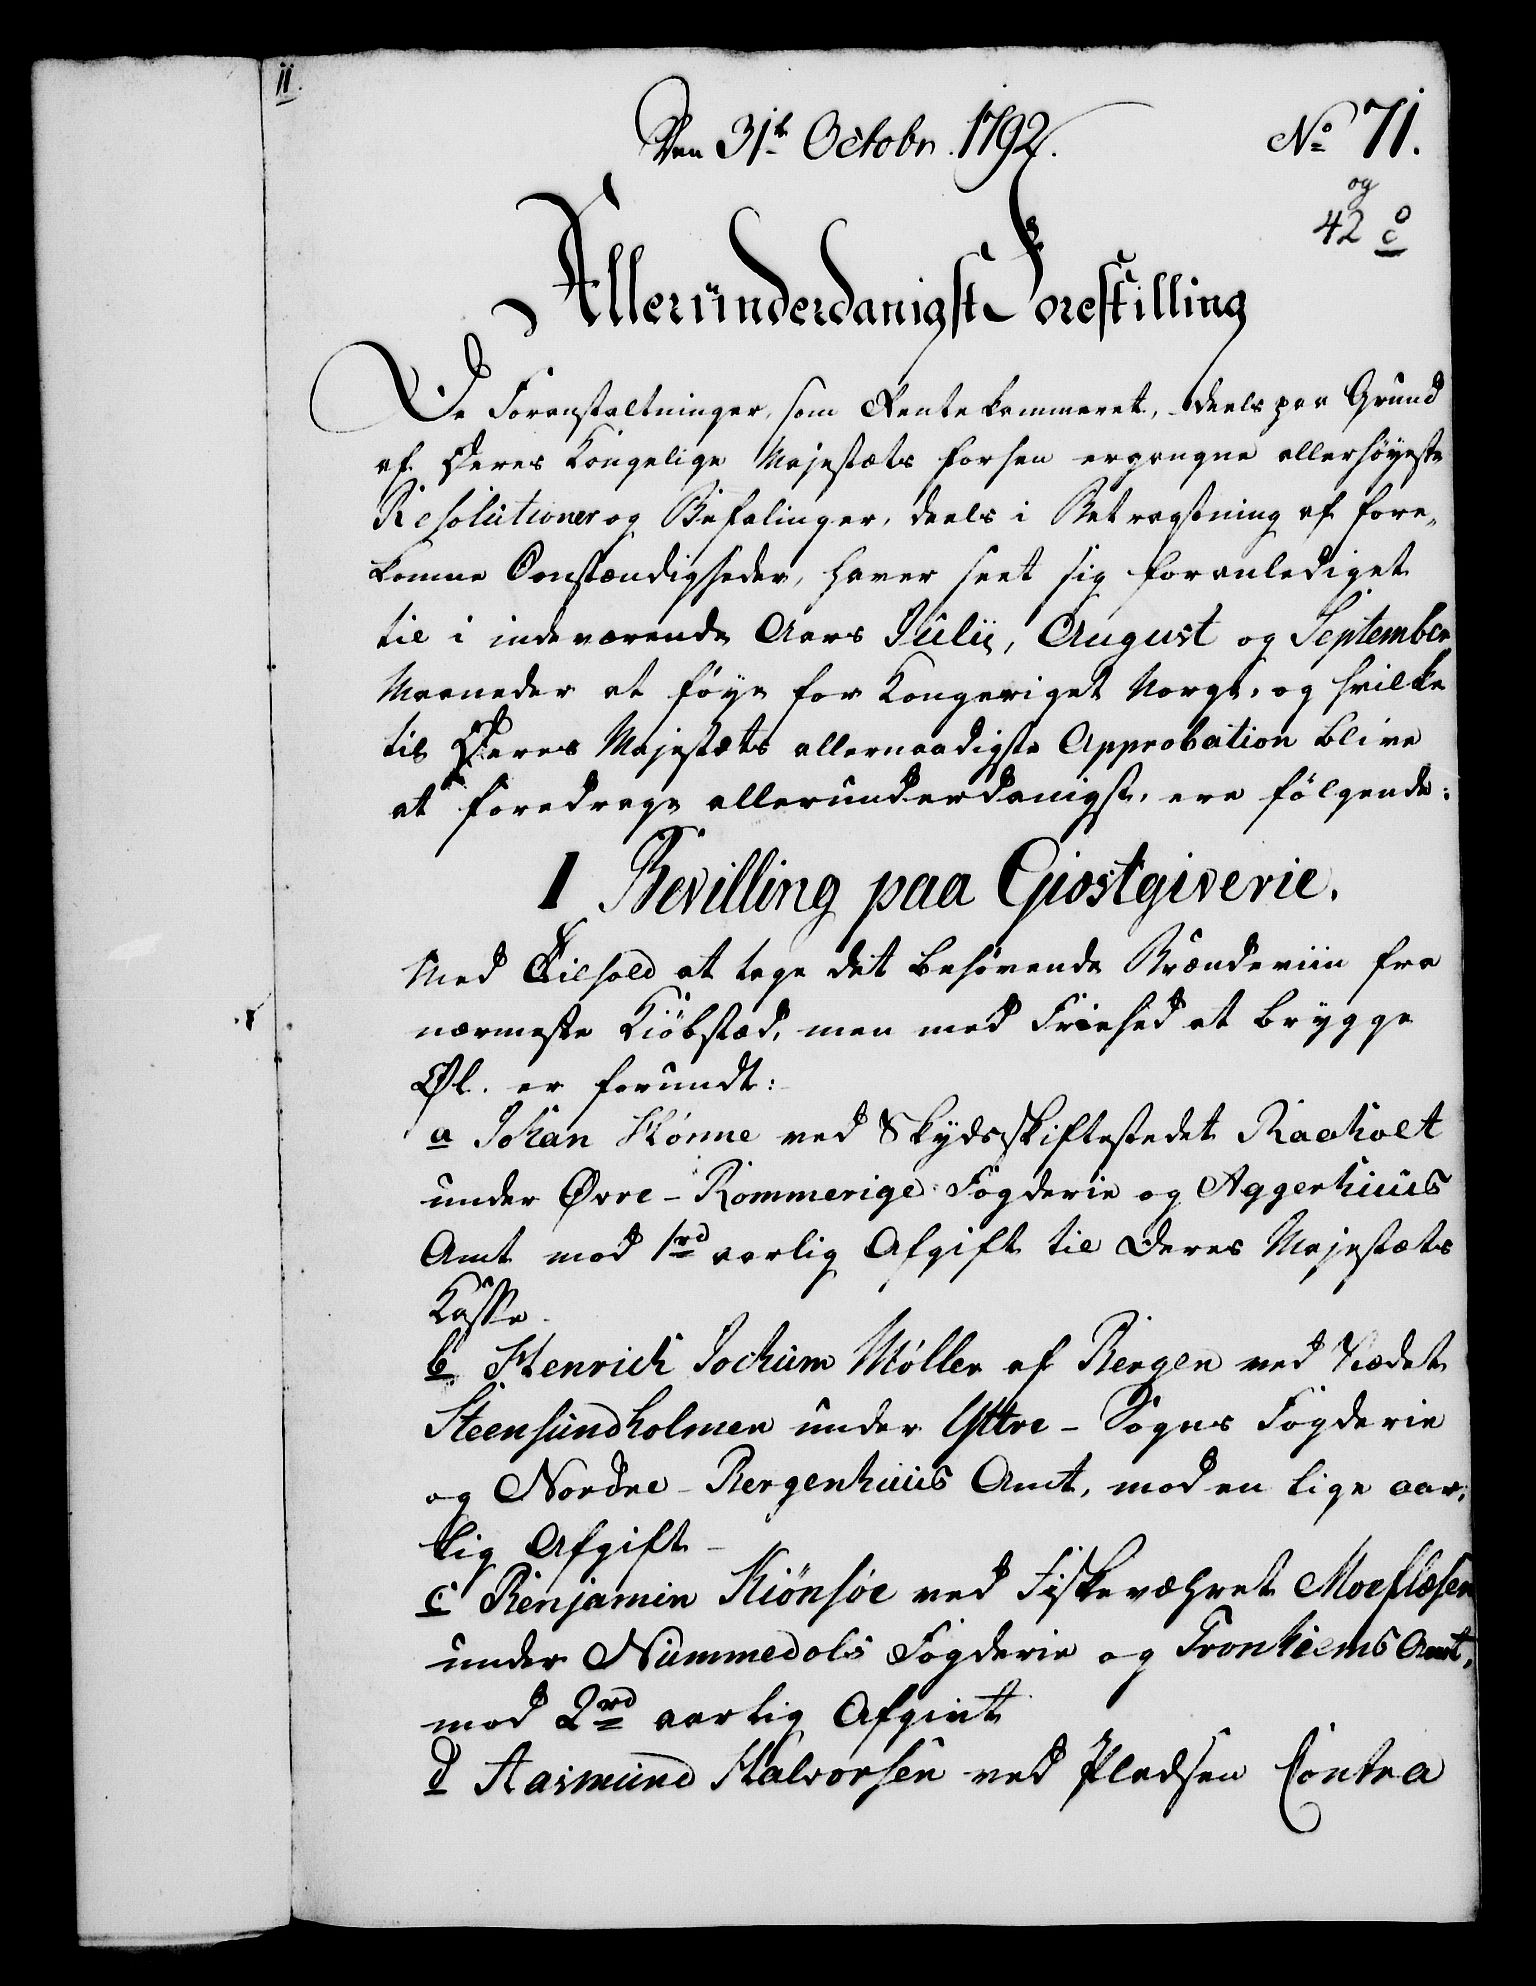 ii.
Den 31te Octobr. 1792.
No 71.
og
42 c
Alleründerdanigst Forestilling
De Foranstaltninger, som Rentekammeret, deels paa Grund
af Deres Kongelige Majestæts forhen ergangne allerhøyeste
Resolutioner og Befalinger, deels i Betragtning af fore-
komne Omstændigheder, haver seet sig foranlediget
til i indeværende Aars Julii, August og September
Maaneder at føye for Kongeriget Norge, og hvilke
til Deres Majestæts allernaadigste Approbation blive
at foredrage allerunderdanigst, ere følgende:
1 Bevilling paa Giæstgiverie.
Med Tilhold at tage det behøvende Brændeviin fra
nærmeste Kiöbstæd, men med Friehed at brygge
Øl. er forundt:
a Johan Hönne ved Skydsskiftestedet Raaholt
under Øvre-Rommerige Fogderie og Aggerhuus
Amt mod 1rd aarlig Afgift til Deres Majestæts
Kasse.
b Henrich Jochum Møller af Bergen ved Stædet
Steensundholmen under Yttre-Sogns Fogderie
og Nordre-Bergenhuus Amt, mod en lige aar-
lig Afgift
c Benjamin Kiönsöe ved Fiskeværet Moeflæsen
under Nummedols Fogderie og Tronhiems Amt,
mod 2rd aarlig Afgivt
d Aasmund Halvorsen ved Pladsen Contra